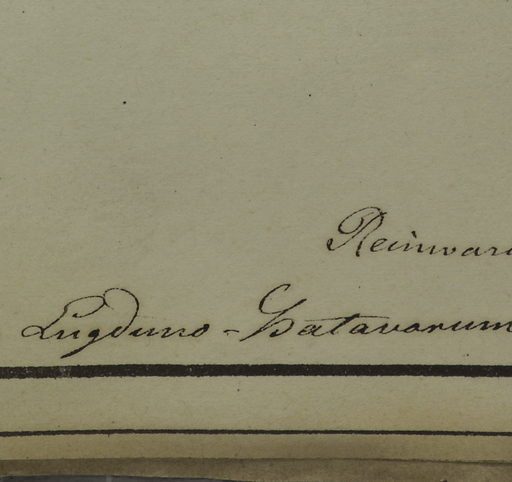 Reinwar
Lugduno-Batavorum